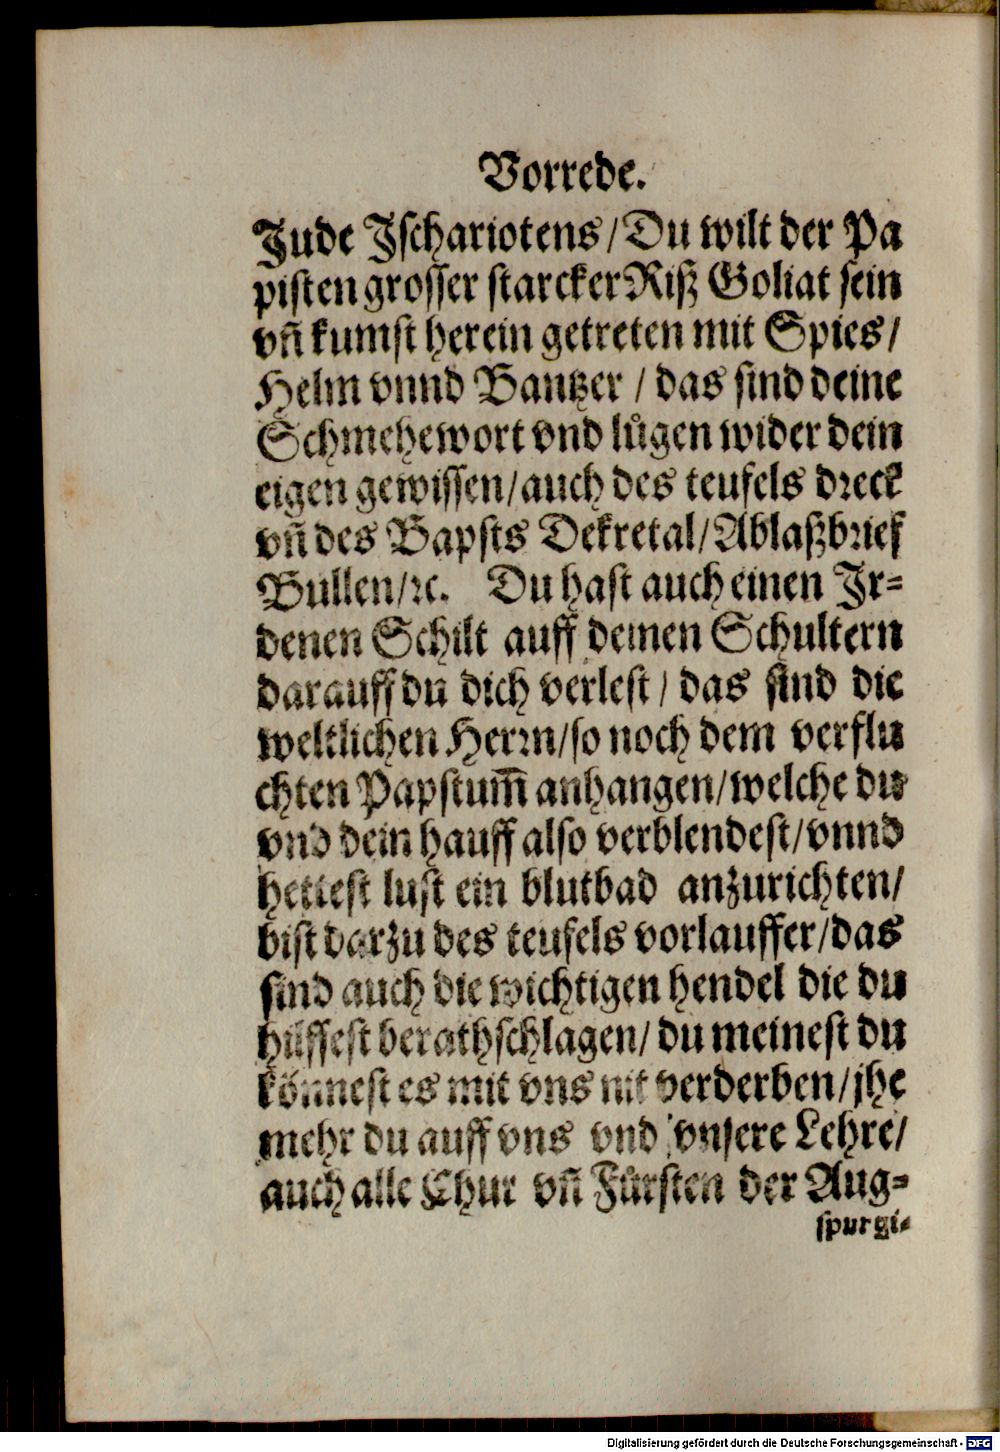 Vorrede.
Jude Jſchariotens/Du wilt der Pa
piſten groſſer ſtarcker Riß Goliat ſein
vñ kumſt herein getreten mit Spies/
Helm vnnd Bantzer / das ſind deine
Schmehewort vnd luͤgen wider dein
eigen gewiſſen/auch des teufels dꝛeck
vñ des Bapſts Dekretal/Ablaßbꝛief
Bullen/ꝛc. Du haſt auch einen Jr⸗
denen Schilt auff deinen Schultern
darauff du dich verleſt / das ſind die
weltlichen Herꝛn/ſo noch dem verflu
chten Papſtum̅ anhangen/welche du
vnd dein hauff alſo verblendeſt/vnnd
hetteſt luſt ein blutbad anzurichten/
biſt darzu des teufels vorlauffer/das
ſind auch die wichtigen hendel die du
hilffeſt berathſchlagen/ du meineſt du
könneſt es mit vns nit verderben/jhe
mehr du auff vns vnd vnſere Lehre/
auch alle Chur vñ Fuͤrſten der Aug⸗
ſpurgi⸗
Digitalisierung gefördert durch die Deutsche Forschungsgemeinschaft - DFG